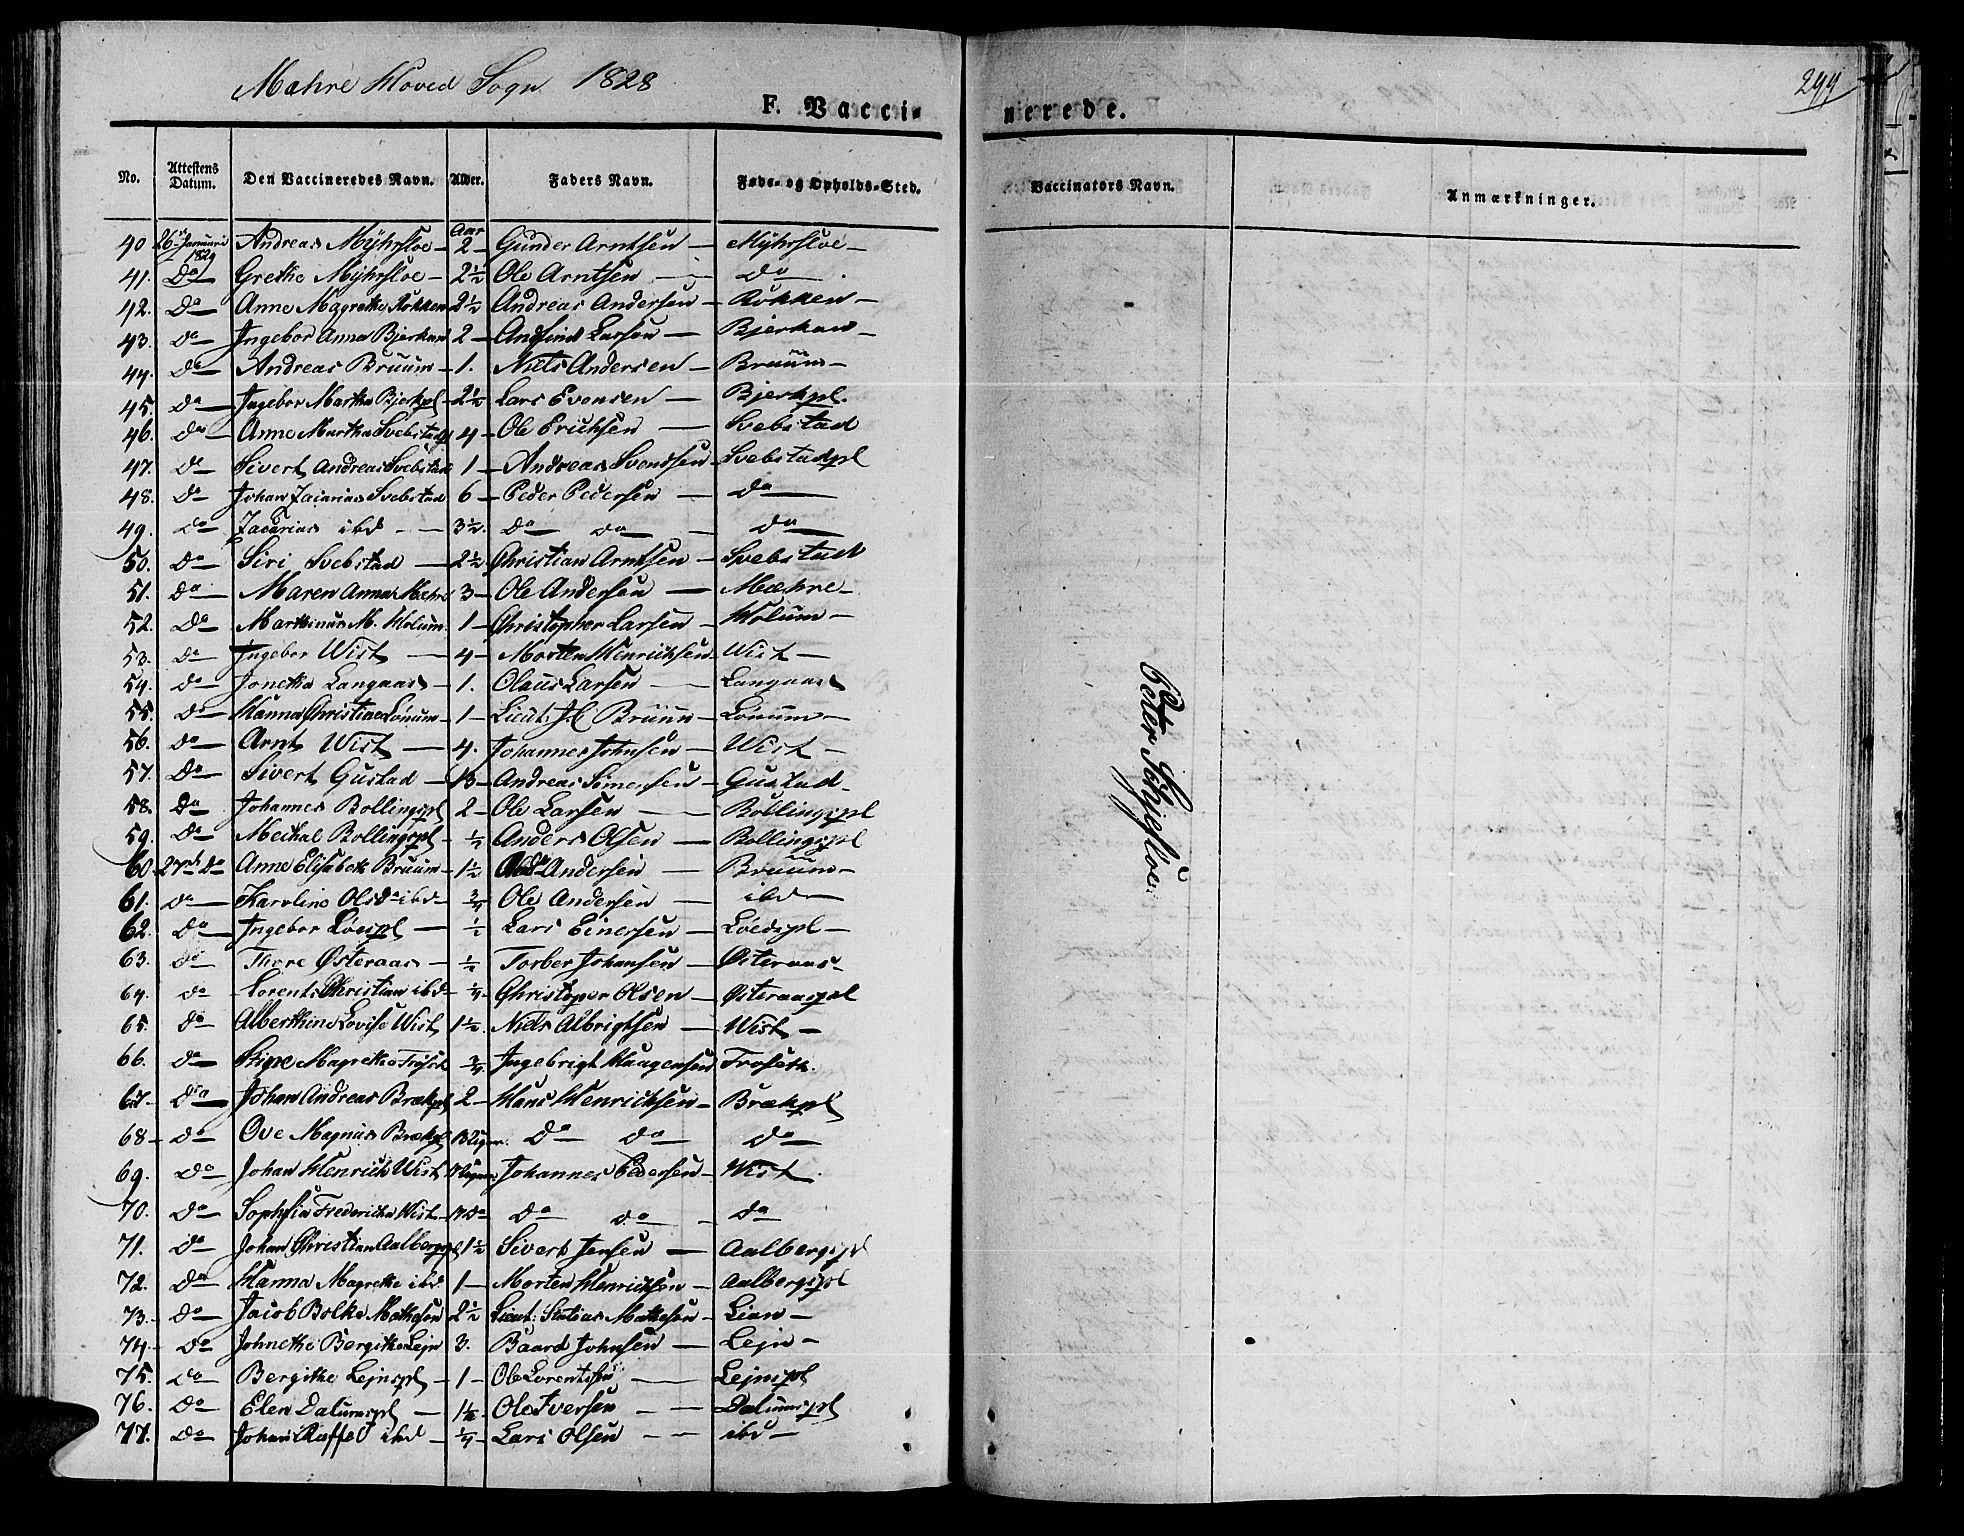 Mæhre Hoved Sogn 1828
299
F. Vacci-
nerede.
No. Attestens Datum. Den Vaccineredes Navn. Alder. Faders Navn. Føde- og Opholds-Sted. Vaccinators Navn. Anmærkninger.
40 26 Januarii 1829 Andreas Mÿhrsloe – Aar 2 – Gunder Arntsen – Mÿhrsloe –
41. Do Grethe Mÿhrsloe – 2½ Ole Arntsen – do
42. Do Anne Magrethe Røkken 2½ Andreas Andersen – Røkken –
43. do Ingebor Anna Bjerkan 2 – Andfind Larsen – Bjerkan –
44. do Andreas Bruum – 1. Niels Andersen – Bruum –
45. do Ingebor Martha Bjerkpl – 2½ Lars Evensen – Bjerkpl.
46. do Anne Martha Svebstad 4 – Ole Erichsen – Svebstad
47. do Sivert Andreas Svebstad 1 – Andreas Svendsen – Svebstadpl
48. do Johan Zacarias Svebstad 6 – Peder Pedersen – do
49. do Zacarias ibd – 3½. do do – do
50. do Siri Svebstad – 2½ Christian Arntsen – Svebstad
51. do Maren Anna Mæhre 3 – Ole Andersen – Mæhre –
52. Do Marthinus M. Holum 1 – Christopher Larsen – Holum –
53. do Ingebor Wist – 4 – Morten Henrichsen – Wist –
54. do Jonetha Langaas – 1. Olaus Larsen – Langaas
55. do Hanna Christine Lønum – 1 – Lieut: Bruun – Lønum –
56. do Arnt Wist – 4. Johannes Johnsen – Wist –
57. Do Sivert Gustad – Andreas Simensen – Gustad –
58. Do Johannes Bollingspl 2 – Ole Larsen – Bollingspl
59. do Meikal Bollingspl – ½ Anders Olsen – Bollingspl
60. 27de do Anne Elisabeth Bruum – 1½ Andersen – Bruum –
61. do Karoline Olsd. ibd – ¾ Ole Andersen – ibd
62. do Ingebor Løespl – ½ Lars Einersen – Løedspl –
63. do Thore Østeraas – ½ Torber Johansen – Østeraas –
64. do Lorents Christian ibd – ¼ Christoper Olsen – Østeraaspl
65. do Alberthine Lovise Wist 1½. Niels Albrigtsen – Wist –
66. do Stine Magrethe Frøseth ¾ Ingebrigt Haagensen Frøseth.
67 – do Johan Andreas Brækpl 2 – Hans Henrichsen – Brækpl
68 – do Ove Magnus Brækpl Uger. do do do
69. do Johan Henrich Wist Uger Johannes Pedersen – Wist.
70. do Sophia Fredericka Wist – do do do – do
71. do Johan Christian Aalbergspl 1½ Sivert Jensen – Aalbergspl
72. do Hanna Magrethe ibd 1 – Morten Henrichsen – Aalbergspl
73 – do Jacob Bolke Mathesen 2½ Lieut: Statius Mathesen – Lian –
74 – do Johnetha Bergithe Lejn 3. Baard Johnsen – Lejn –
75. do Bergithe Lejnspl – 1 – Ole Lorentsen – Lejnspl
76. do Elen Dalumspl – 1½ Ole Iversen – Dalumspl
77. do Johan Raffel ibd – ¼ – Lars Olsen – ibd –
Peter Schjefloe.